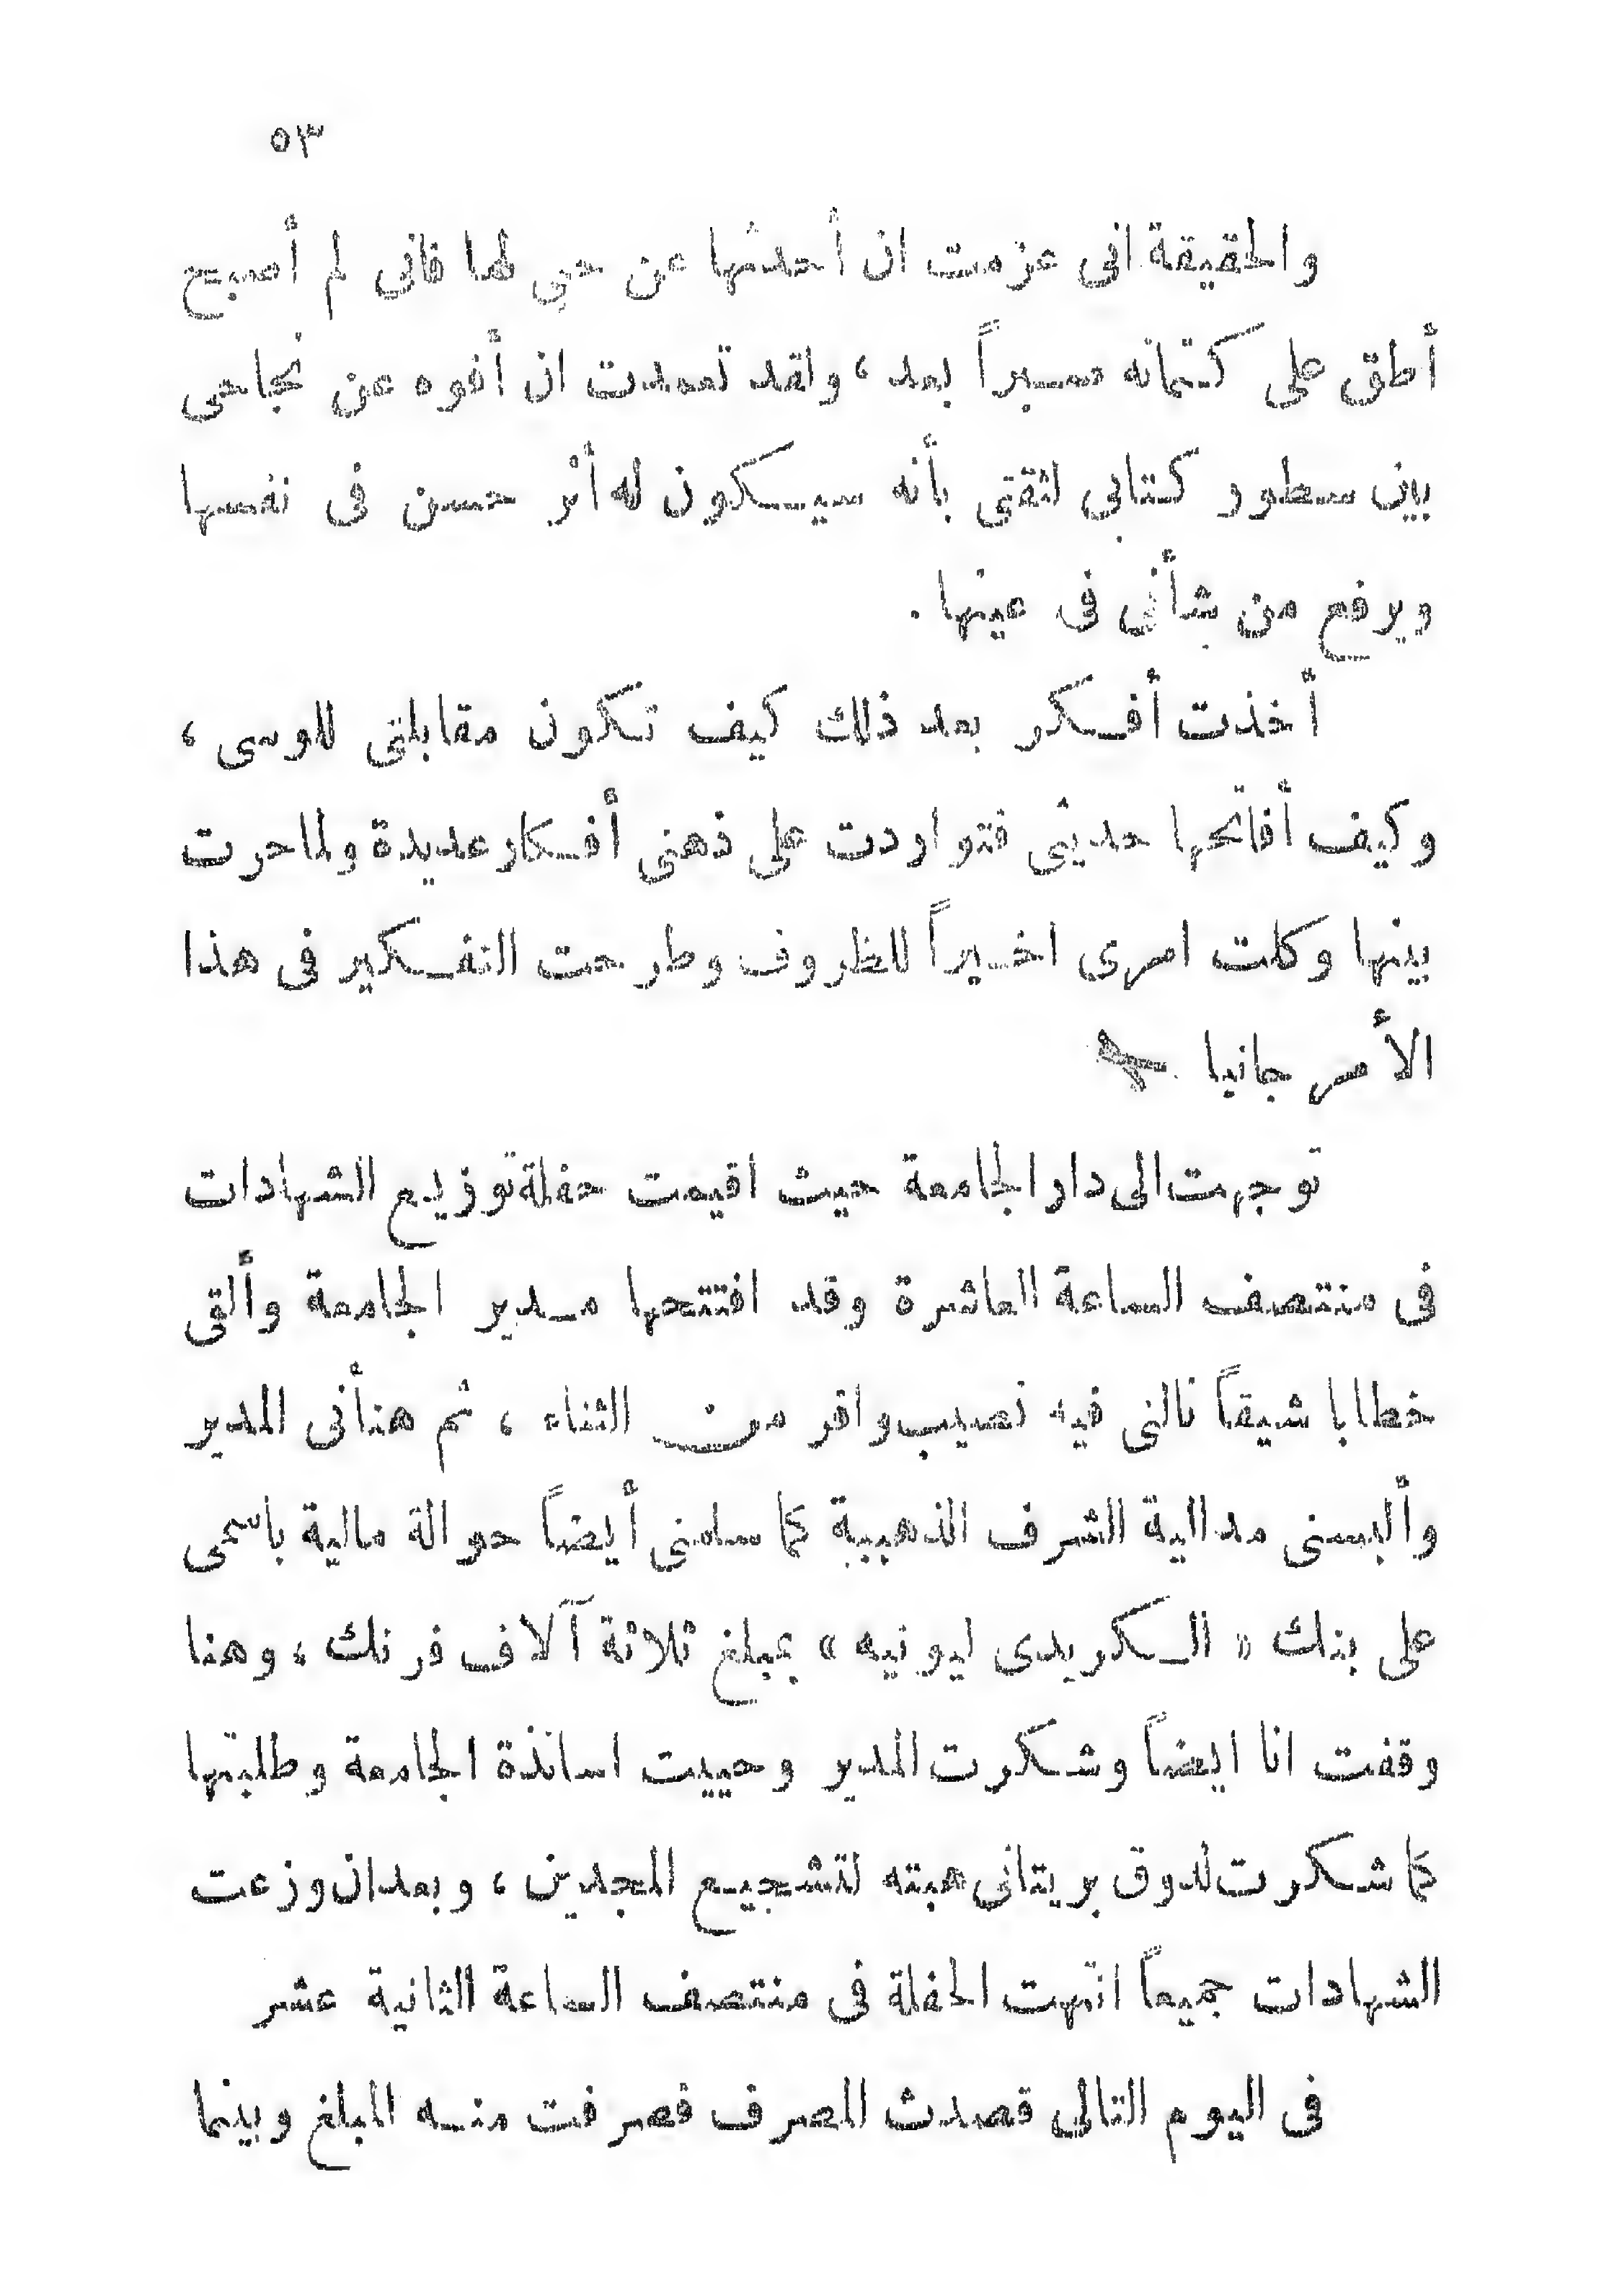 ٥٣
والحقيقة انى عزمت ان أحدثها عن حبي لها فانى لم أصبح
أطق على كتمانه صبراً بعد ، ولقد تعمدت ان أفوه عن نجاحى
بين سطور كتابى لثقتى بأنه سيكون له أثر حسن فى نفسها
ويرفع من شأنى فى عينها .
أخذت أفكر بعد ذلك كيف تكون مقابلتى للوسى ،
وكيف أفاتحها حديثى فتواردت على ذهنى أفكار عديدة ولما حرت
بينها وكلت امرى اخيراً للظروف وطرحت التفكير فى هذا
الأمر جانبا .
توجهت الى دار الجامعة حيث اقيمت حفلة توزيع الشهادات
فى منتصف الساعة العاشرة وقد افتتحها مدير الجامعة وألقى
خطابا شيقاً نالنى فيه نصيب وافر من الثناء ، ثم هنأنى المدير
وألبسنى مدالية الشرف الذهبية كما سلمنى أيضاً حوالة مالية باسمى
على بنك « الكريدى ليونيه » بمبلغ ثلاثة آلاف فرنك ، وهنا
وقفت انا ايضاً وشكرت المدير وحييت اساتذة الجامعة وطلبتها
كما شكرت لدوق بريتانى هبته لتشجيع المجدين ، وبعد ان وزعت
الشهادات جميعاً انتهت الحفلة فى منتصف الساعة الثانية عشر
فى اليوم التالى قصدث المصرف فصرفت منه المبلغ وبينما